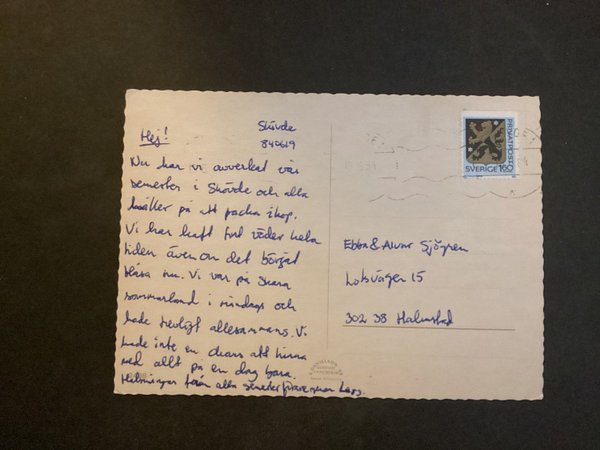 Skövde
840619
Hej!
Nu har vi avverkat vår
semester i Skövde och alla
håller på att packa ihop.
Vi har haft fint väder hela
tiden även om det börjat
blåsa nu. Vi var på Skara
sommarland i söndags och
hade trevligt allesammans. Vi
hade inte en chans att hinna
med allt på en dag bara.
Hälsningar från alla genom Lars.
PRIVATPOST
SVERIGE 160
Ebba & Alvar Sjögren
Loksvägen 15
302 38 Halmstad